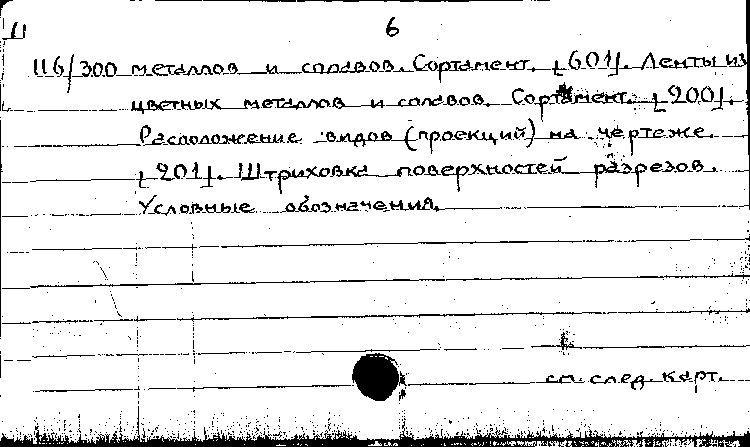 11 6
116/300 металлов и сплавов. Сортамент. [601]. Ленты из
цветных металлов и сплавов. Сортамент. [200].
Расположение видов (проекций) на чертеже.
[201]. Штриховка поверхностей разрезов.
Условные обозначения.
см. след. карт.